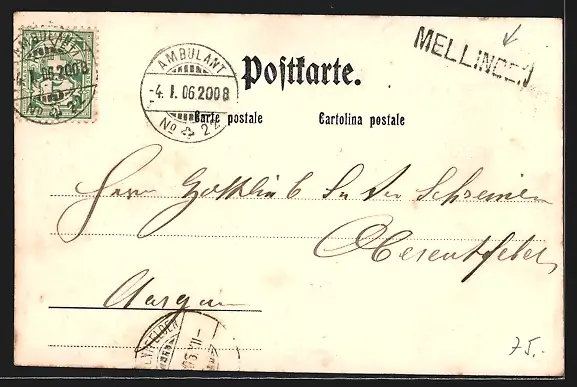 MELLINGEN
AMBULANT
Postkarte.
-4. I. 06.2008
No 22
Carte postale Cartolina postale
Herrn Gottlieb In der
Oberentfelden
Aargau
75.-